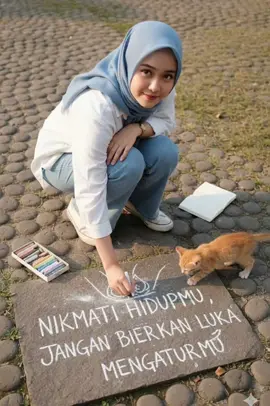 NIKMATI HIDUPMU,
JANGAN BIERKAN LUKA
MENGATURMU